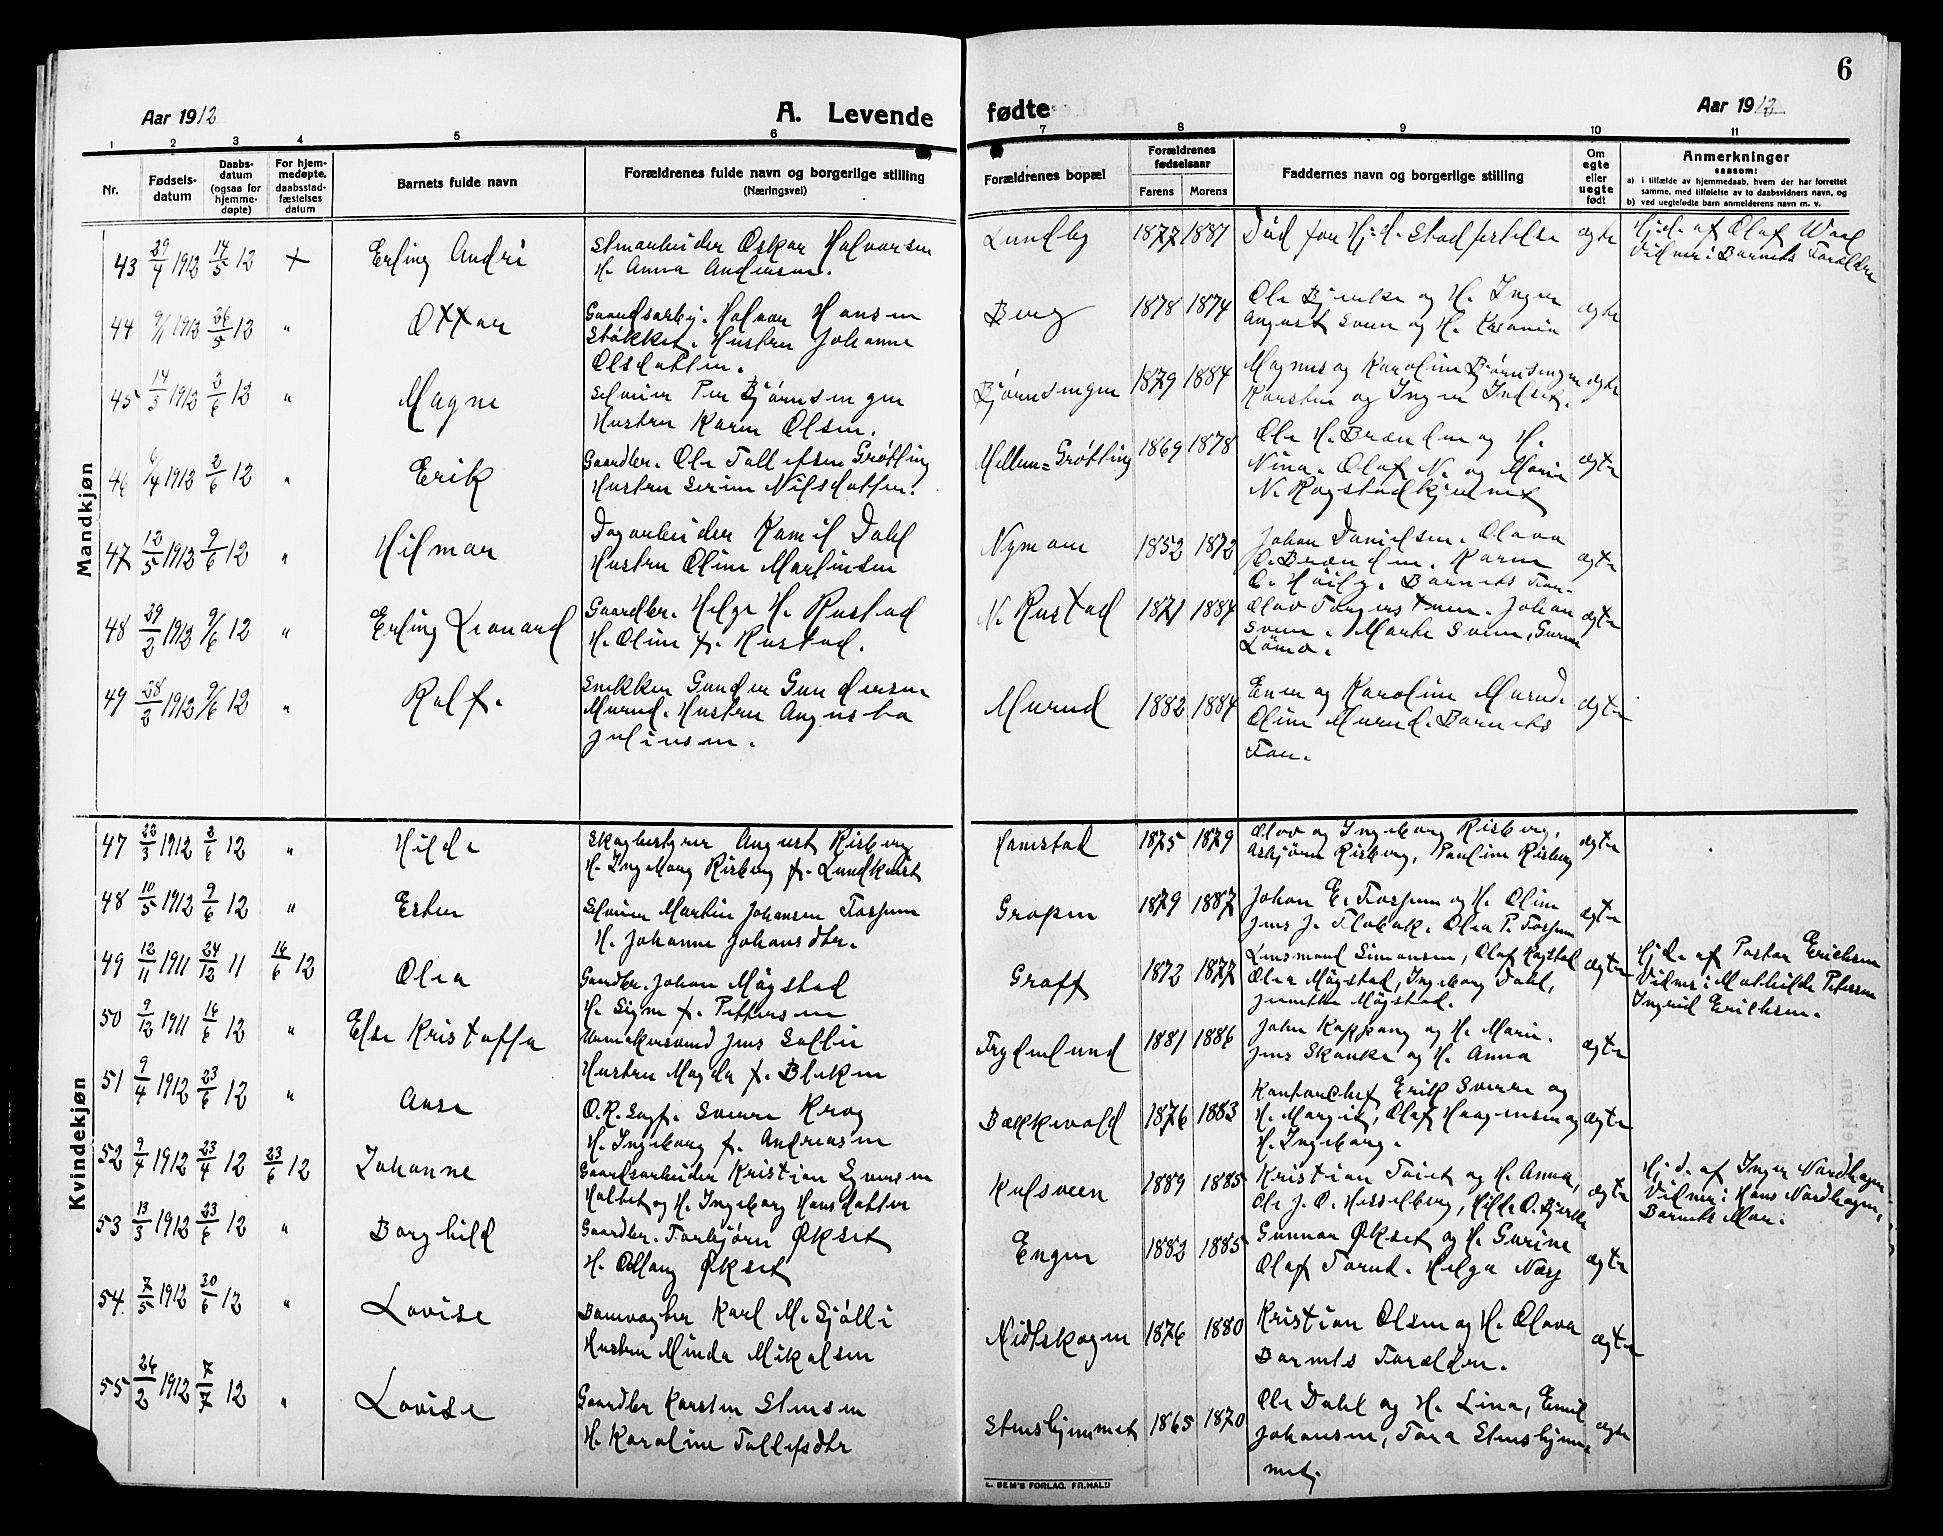 6
Aar 1912
A. Levende
fødte
Aar 1912
1 2 3 4 5 6 7 8 9 10 11
Nr.
Fødsels-
datum
Daabs-
datum
(ogsaa for
hjemme-
døpte)
For hjem-
medøpte,
daabsstad-
fæstelses
datum
Barnets fulde navn
Forældrenes fulde navn og borgerlige stilling
(Næringsvei)
Forældrenes bopæl
Forældrenes
fødselsaar
Farens Morens
Faddernes navn og borgerlige stilling
Om
egte
eller
uegte
født
Anmerkninger
saasom:
a) i tilfælde av hjemmedaab, hvem der har forrettet
samme, med tilføielse av to daabsvidners navn, og
b) ved uegtefødte barn anmelderens navn m. v.
Mandkjøn
43 29/4 1912 14/5 12 + Erling Andri
Oskar Halvorsen
H. Anna Andersen.
Lundby 1877 1887 Død før Hj.d. Stadfestelse ægte
Hj.d. af Olaf
Vidner: Barnets Forældre
44 9/1 1912 26/5 12 " Ottar
Gaardsarb. Halvor Hansen
Støkket. Hustru Johanne
Olsdatter.
Berg 1878 1874
Ole Bjerke og H. Inger
August Sveen og H. ægte
45 14/3 1912 2/6 12 " Magne
Per Bjørnsingen
Hustru Karen Olsen.
Bjørnsingen 1879 1884
Magnus og Karoline Bjørnsingen
Karsten og Inger Indset. ægte
46 6/4 1912 2/6 12 " Erik
Gaardbr. Ole Tollefsen Grøtting
Hustru Serine Nilsdatter.
Mellem=Grøtting 1869 1878
Ole H. Brænden og H.
Nina. Olaf N. og Marie
N. Rogstadkjernet ægte
47 12/5 1912 9/6 12 " Hilmar
Dagarbeider Kamil Dahl
Hustru Oline Martinsen
Nymoen 1852 1872
Johan Danielsen. Olava
O. Brænden. Karen
O. Høiby. Barnets Far. ægte
48 29/2 1912 9/6 12 " Erling Leonard
Gaardbr. Helge H. Rustad
H. Oline f. Rustad.
N. Rustad 1871 1884
Olav Johan
Sveen. Marte Sveen,
Lømo. ægte
49 28/2 1912 9/6 12 " Rolf.
Snekker Gunder Gundersen
Murud. Hustru Augusta
Julinsen.
Murud 1882 1884
Even og Karoline Murud.
Oline Murud. Barnets
Far. ægte
Kvindekjøn
47 23/3 1912 2/6 12 " Hilde
Skogbestyrer August Risberg
H. Ingeborg Risberg f. Lundkvist
Hamstad 1875 1879
Olav og Ingeborg Risberg,
Asbjørn Risberg, Pauline Risberg ægte
48 10/5 1912 9/6 12 " Ester
Martin Johansen Fossum
H. Johanne Johansdtr.
Gropen 1879 1887
Johan E. Fossum og H. Oline
Jens J. Flobak. Olea P. Fossum ægte
49 12/11 1911 24/12 11 16/6 12 Olea
Gaardbr. Johan Møgstad
H. Signe f. Pettersen
Graff 1872 1877
Lensmand Simonsen, Olaf Rogstad
Olea Møgstad, Ingeborg Dahl,
Møgstad. ægte
Hj.d. af Pastor Erichsen
Vidner: Mathilde Petersen
Ingrid Erichsen.
50 9/12 1911 16/6 12 " Else Kristoffa
Jens Sollie
Hustru Magda f. Bleken
Frydenlund 1881 1886
John Koppang og H. Marie.
Jens Skanke og H. Anna ægte
51 9/4 1912 23/6 12 " Aase
O.R. Sagf. Sverre Krog
H. Ingeborg f. Andreasen
Bækkevold 1876 1883
Kontorchef Erik Sverre og
H. Margit, Olaf Haagensen og
H. Ingeborg. ægte
52 9/4 1912 23/4 12 23/6 12 Johanne
Gaardsarbeider Kristian Evensen
Holtet og H. Ingeborg Hansdatter
Kulsveen 1889 1885
Kristian Toiet og H. Anna,
Ole J. O. Hesselberg, Hille O. Bjerke ægte
Hj.d. af Inger Nordhagen
Vidner: Hans Nordhagen,
Barnets Mor.
53 13/3 1912 23/6 12 " Borghild
Gaardbr. Torbjørn Økset
H. Økset
Engen 1882 1885
Gunnar Økset og H. Gurine
Olaf Torud. Helga Næss ægte
54. 7/5 1912 30/6 12 " Lovise
Damvogter Karl M. Sjølli
Hustru Minda Mikalsen
Nidtskogen 1876 1880
Kristian Olsen og H. Olava
Barnets Forældre. ægte
55 26/2 1912 7/7 12 " Lovise
Gaardbr Karsten Stensen
H. Karoline Tollefsdtr
Stenshjemmet 1865 1870
Ole Dahl og H. Lina, Emil
Johansen, Tora Stenshjem-
met. ægte
E. SEM'S FORLAG, FR.HALD